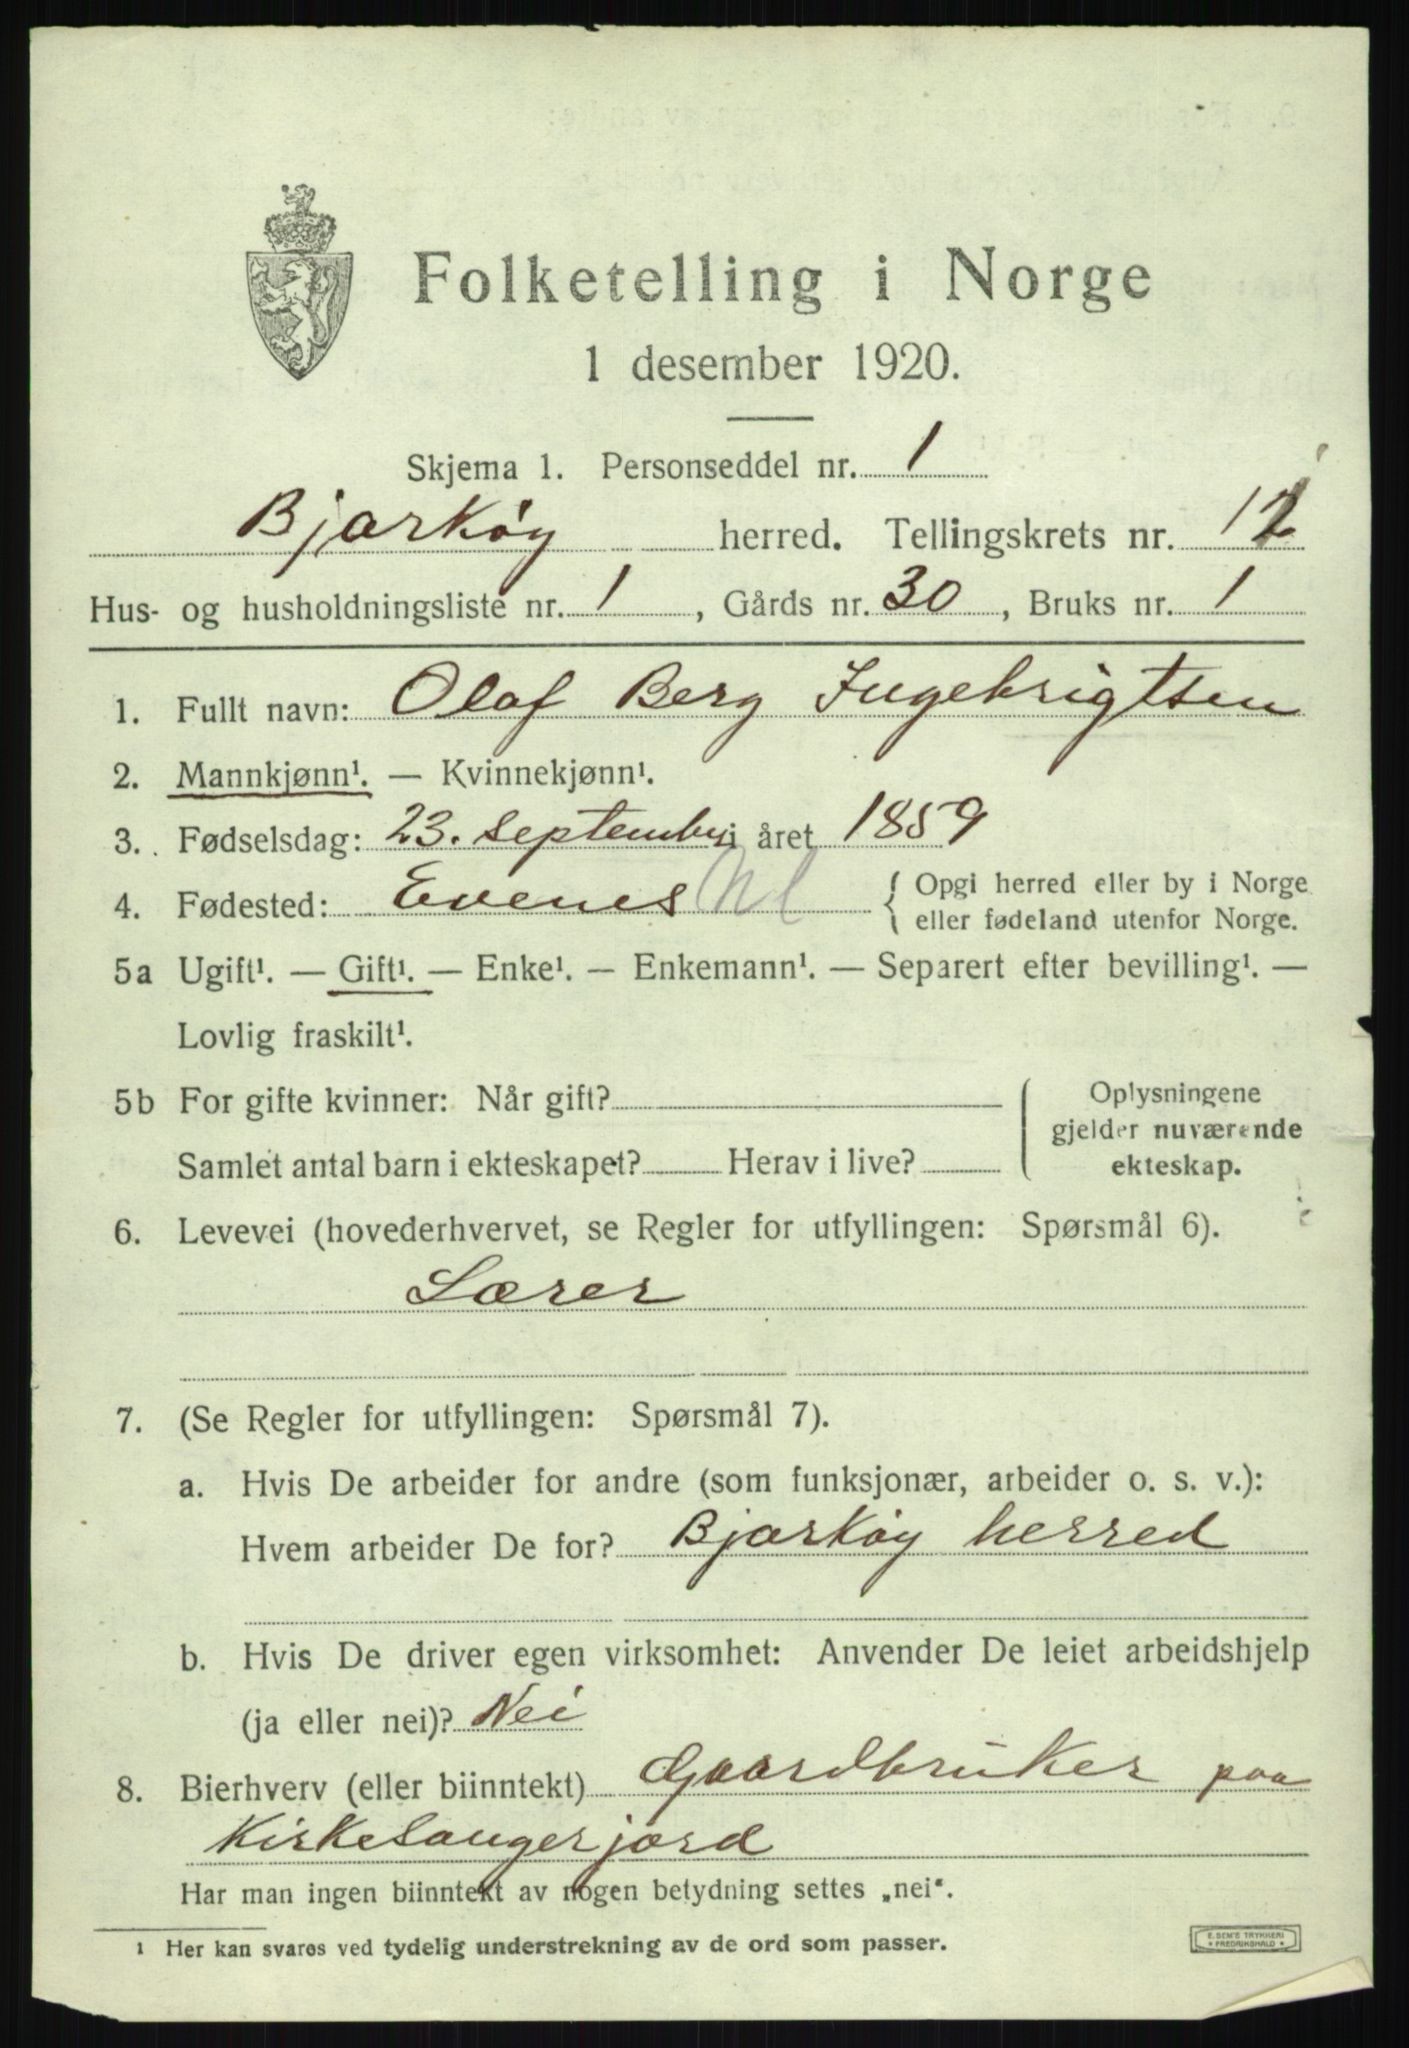 Folketelling i Norge
1 desember 1920.
Skjema 1. Personseddel nr. 1
Bjarkøy herred. Tellingskrets nr. 12
Hus- og husholdningsliste nr. 1, Gårds nr. 30, Bruks nr. 1
1. Fullt navn: Olaf Berg Ingebrigtsen
2. Mannkjønn¹. — Kvinnekjønn¹.
3. Fødselsdag: 23. september i året 1859
4. Fødested: Evenes Nl { Opgi herred eller by i Norge
eller fødeland utenfor Norge.
5a Ugift¹. — Gift¹. — Enke¹. — Enkemann¹. — Separert efter bevilling¹. —
Lovlig fraskilt¹.
5b For gifte kvinner: Når gift?
Samlet antal barn i ekteskapet? Herav i live?
Oplysningene
gjelder nuværende
ekteskap.
6. Levevei (hovederhvervet, se Regler for utfyllingen: Spørsmål 6).
Lærer
7. (Se Regler for utfyllingen: Spørsmål 7).
a. Hvis De arbeider for andre (som funksjonær, arbeider o. s. v.):
Hvem arbeider De for? Bjarkøy herred
b. Hvis De driver egen virksomhet: Anvender De leiet arbeidshjelp
(ja eller nei)? Nei
8. Bierhverv (eller biinntekt) Gaardbruker paa
Kirkesangerjord
Har man ingen biinntekt av nogen betydning settes „nei“.
¹ Her kan svares ved tydelig understrekning av de ord som passer.
E. SEM'S TRYKKERI
* FREDRIKSHALD *